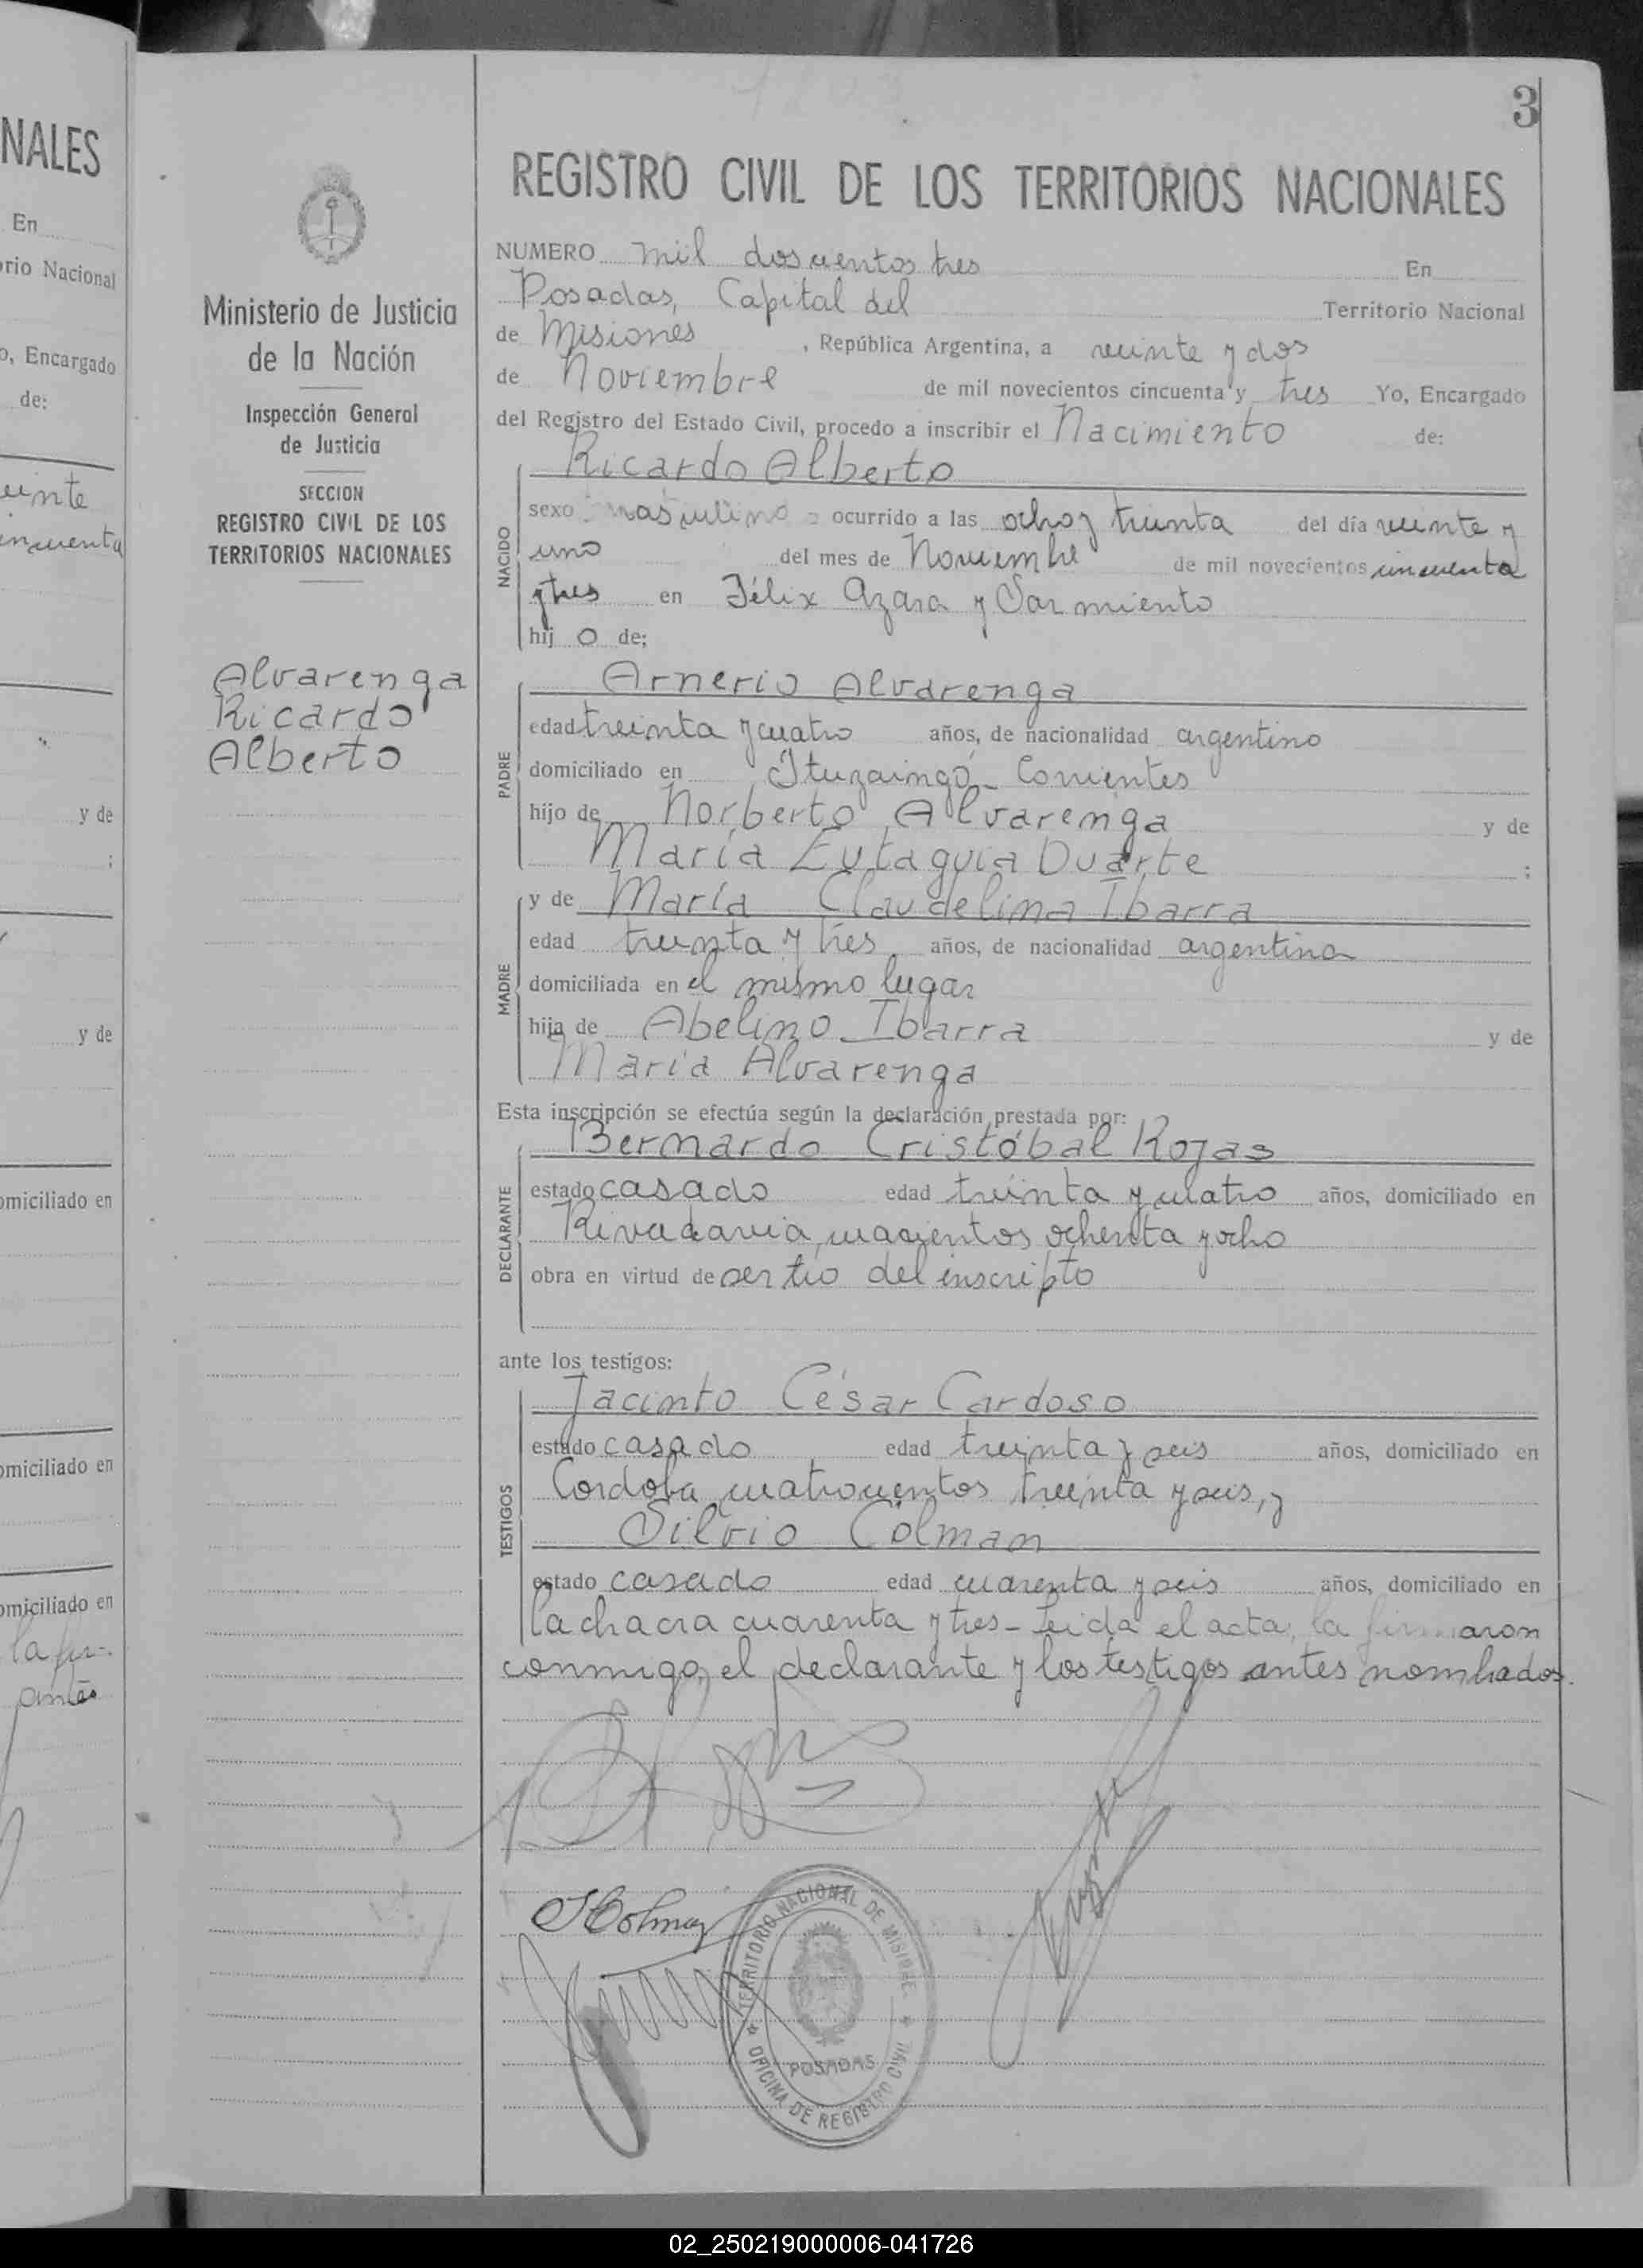 NALES
En
rio Nacional
o, Encargado
de:
einte
incuenta
y de
;
y de
omiciliado en
omiciliado en
omiciliado en
la fir-
antes
Ministerio de Justicia
de la Nación
Inspección General
de Justicia
SECCION
REGISTRO CIVIL DE LOS
TERRITORIOS NACIONALES
Alvarenga
Ricardo
Alberto
3
REGISTRO CIVIL DE LOS TERRITORIOS NACIONALES
NUMERO mil doscientos tres En
Posadas, Capital del Territorio Nacional
de Misiones, República Argentina, a veinte y dos
de Noviembre de mil novecientos cincuenta y tres Yo, Encargado
del Registro del Estado Civil, procedo a inscribir el Nacimiento de:
Ricardo Alberto
NACIDO
sexo masculino ocurrido a las ocho y treinta del día veinte y
uno del mes de Noviembre de mil novecientos cincuenta
y tres en Félix Azara y Sarmiento
hij o de;
Arnerio Alvarenga
PADRE
edad treinta y cuatro años, de nacionalidad argentino
domiciliado en Ituzaingó - Corrientes
hijo de Norberto Alvarenga y de
María Eutaquia Duarte ;
y de María Claudelina Ibarra
MADRE
edad treinta y tres años, de nacionalidad argentina
domiciliada en el mismo lugar
hija de Abelino Ibarra y de
María Alvarenga
Esta inscripción se efectúa según la declaración prestada por:
Bernardo Cristóbal Rojas
DECLARANTE
estado casado edad treinta y cuatro años, domiciliado en
Rivadavia, ochenta y ocho
obra en virtud de ser tío del inscripto
ante los testigos:
Jacinto César Cardoso
TESTIGOS
estado casado edad treinta y seis años, domiciliado en
Cordoba cuatrocientos treinta y seis, y
Silvio Colman
estado casado edad cuarenta y seis años, domiciliado en
la chacra cuarenta y tres - Leida el acta, la firmaron
conmigo, el declarante y los testigos antes nombrados.
SColman
TERRITORIO NACIONAL DE MISIONES
POSADAS
OFICINA DE REGISTRO CIVIL
02_250219000006-041726